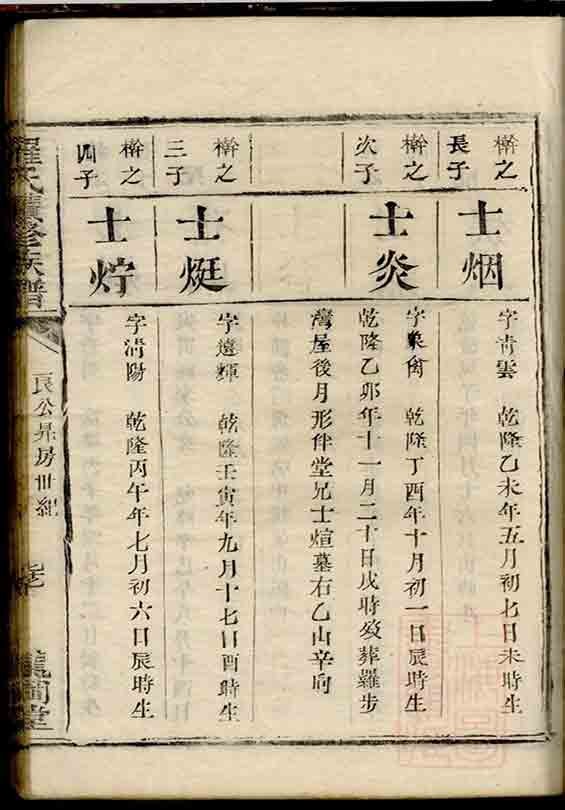 榦之
長子
士烟
字靑雲 乾隆乙未年五月初七日未時生
榦之
次子
士炎
字東禽 乾隆丁酉年十月初一日辰時生
乾隆乙卯年十一月二十日戌時歿葬羅步
灣屋後月形伴堂兄士煊墓右乙山辛向
榦之
三子
士烶
字遠輝 乾隆壬寅年九月十七日酉時生
榦之
四子
士㣔
字淸陽 乾隆丙午年七月初六日辰時生
羅氏續修族譜
良公昇房世紀